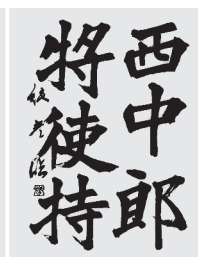 西中郎
將使持